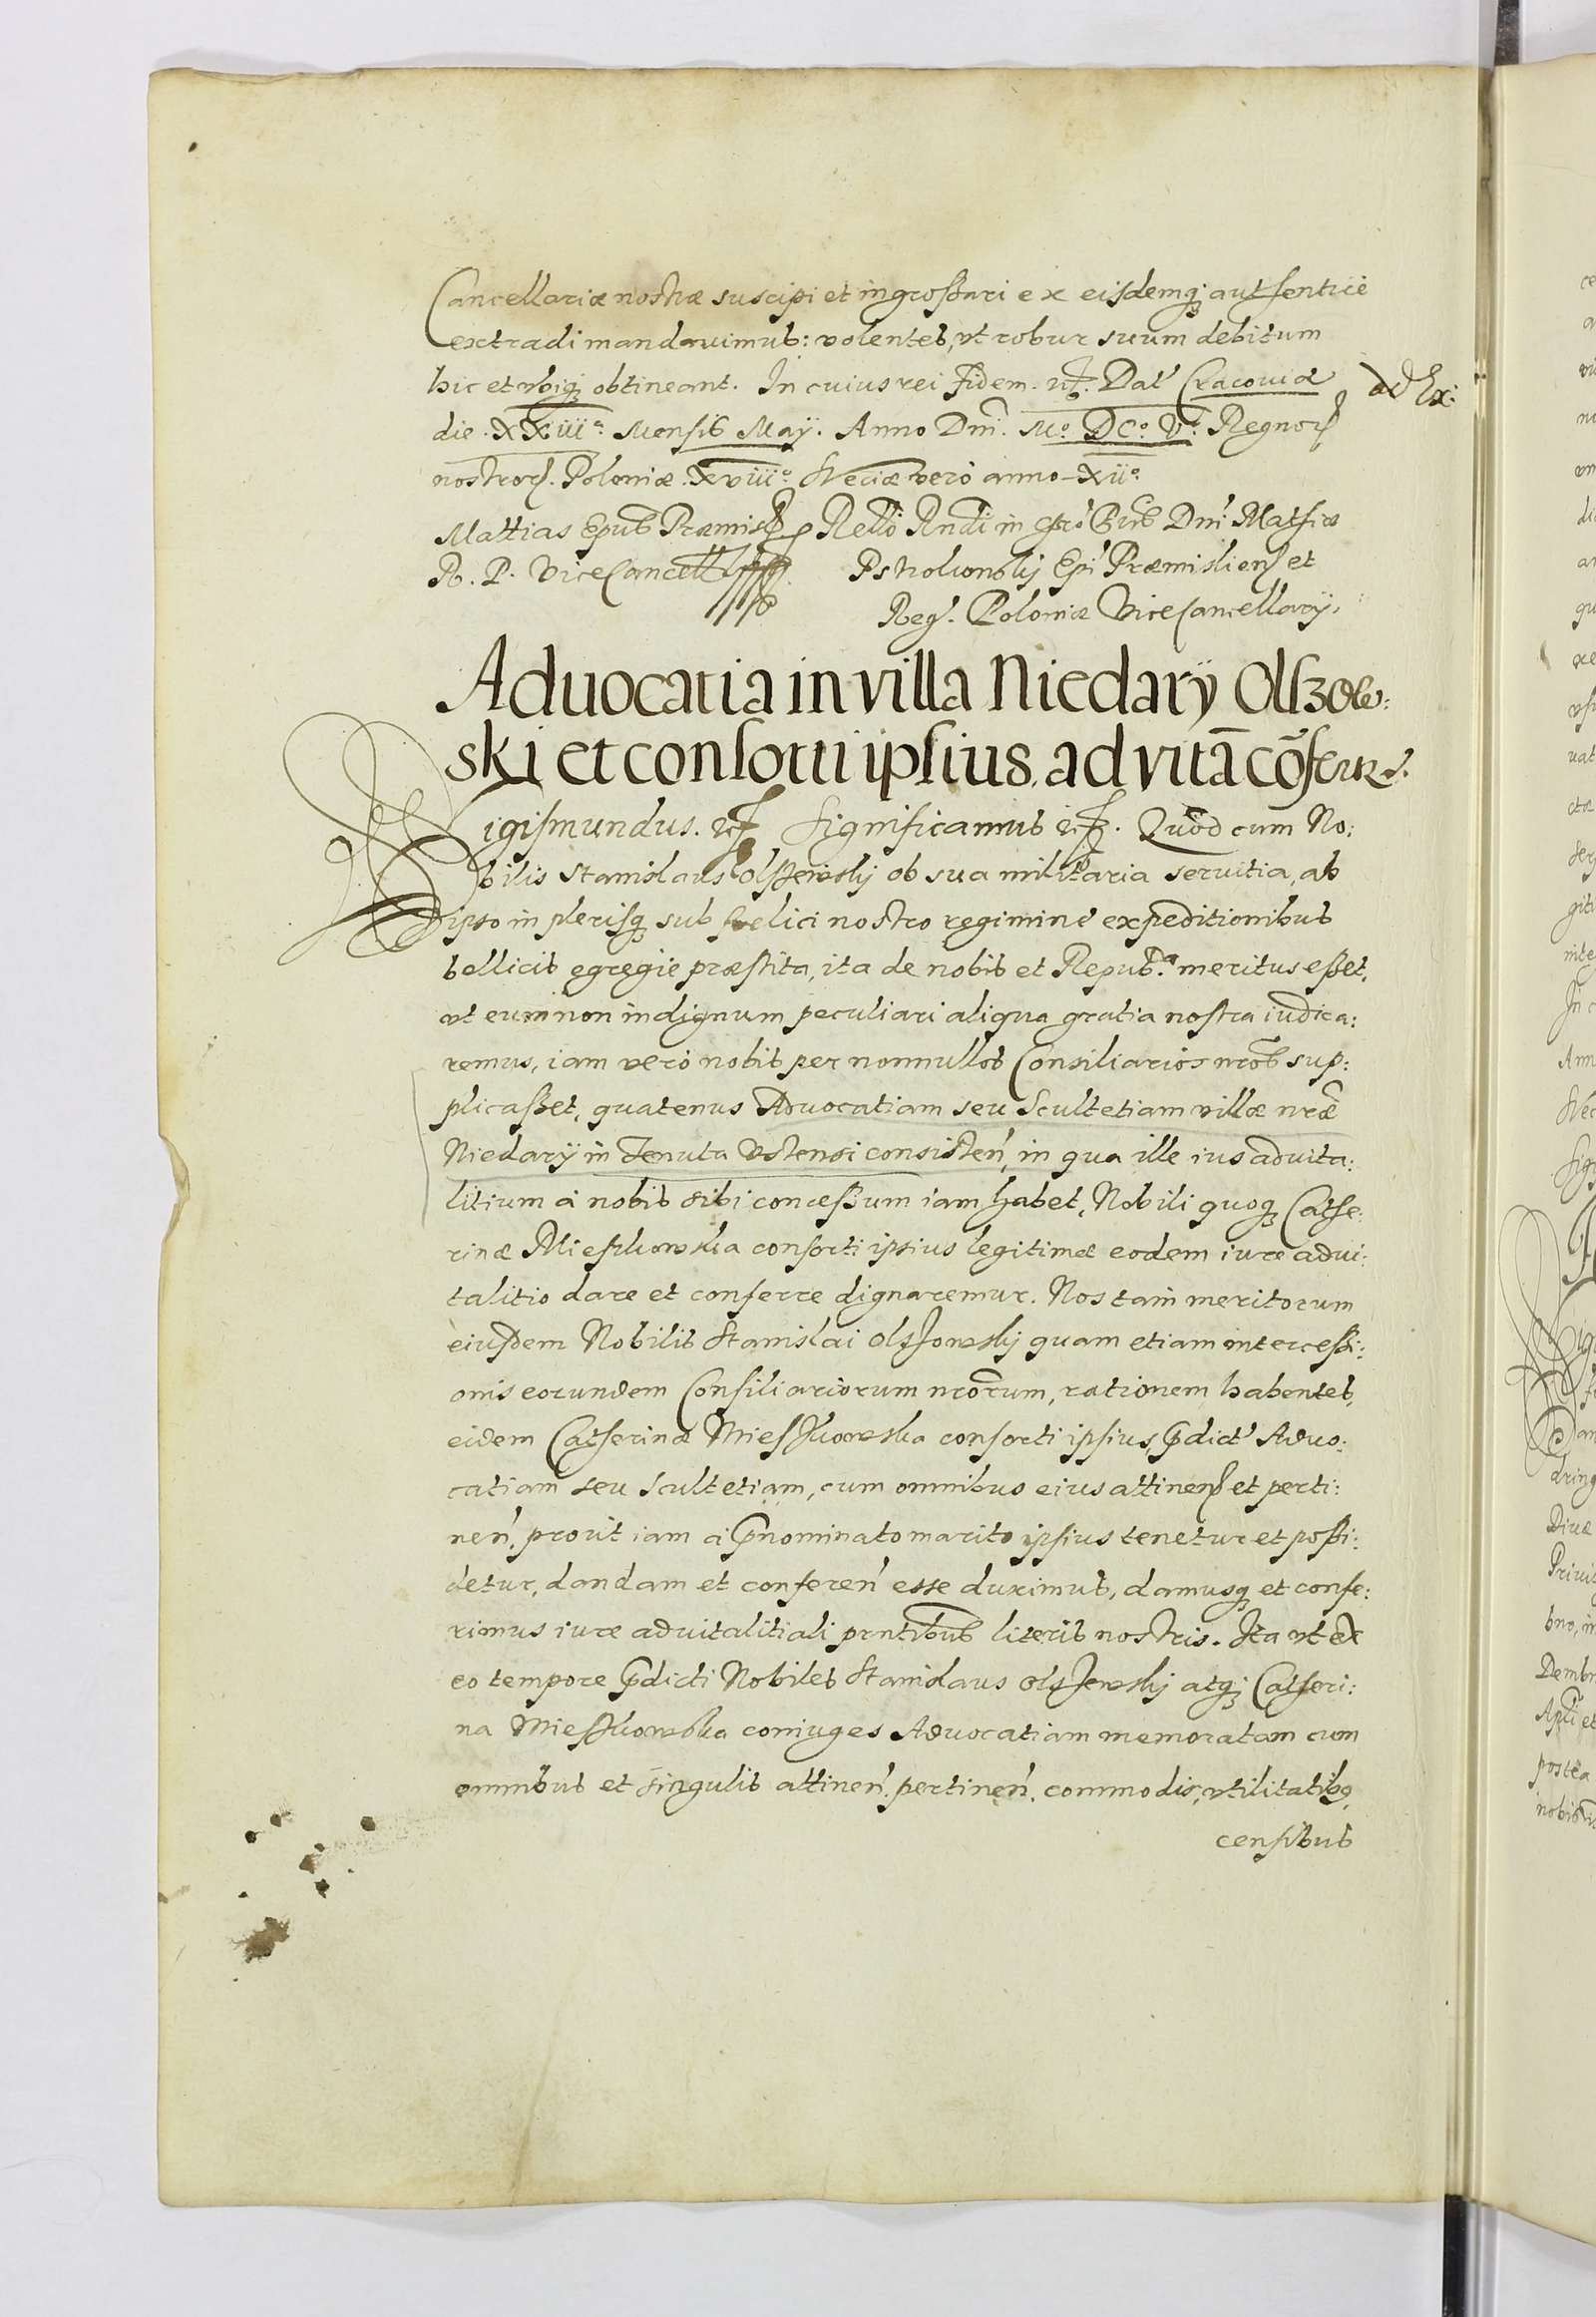 Cancellariæ nostræ suscipi et ingrossari ex eisdemq; authentice
extradi mandauimus: volentes, vt robur suum debitum
hic et vbiq; obtineant. In cuius rei fidem. etc. Dat' Cracouiæ
die. XXiiiª. Mensis Maÿ. Anno Dni. Mº. DCº. Vº. Regnor
nostror. Poloniæ. Xviiiº. Sveciæ vero anno Xiiº
Mattias Epus Præmisl
R. P. ViceCancell
Rello Rndi in Chro Pris Dni Mathiæ
Pstrokonskÿ Epi Præmisliens et
Reg. Poloniæ ViceCancellarÿ.
Aduocatia in villa Niedarÿ Olszow:
ski et consorti ipsius, ad vitā cōfertur.
Sigismundus. etc. Significamus etc. Quod cum No:
bilis Stanislaus Olszewskij ob sua militaria seruitia, ab
ipso in plerisq; sub felici nostro regimine expeditionibus
bellicis egregie præstita, ita de nobis et Repub.ª meritus esset,
vt eum non indignum peculiari aliqua gratia nostra iudica:
remus, iam vero nobis per nonnullos Consiliarios nros sup:
plicasset, quatenus Aduocatiam seu Scultetiam villæ nræ
Niedarÿ in Tenuta Vstensi consisten, in qua ille ius aduita:
litium a nobis sibi concessum iam habet, Nobili quoq; Cathe:
rinæ Mieszkowska consorti ipsius legitimæ eodem iure adui:
talitio dare et conferre dignaremur. Nos tam meritorum
eiusdem Nobilis Stanislai Olszowskij quam etiam intercessi:
onis eorundem Consiliariorum nrorum, rationem habentes,
eidem Catherinæ Mieszkowska consorti ipsius, pdict' Aduo:
catiam seu Scultetiam, cum omnibus eius attinens et perti:
nen, prout iam a pnominato marito ipsius tenetur et possi:
detur, dandam et conferen esse duximus, damusq; et confe:
rimus iure aduitalitiali pntibus literis nostris. Ita vt ex
eo tempore pdicti Nobiles Stanislaus Olszewskij atq; Catheri:
na Mieszkowska coniuges Aduocatiam memoratam cum
omnibus et singulis attinen. pertinen. commodis, vtilitatibq,
censibus
ad Ex: